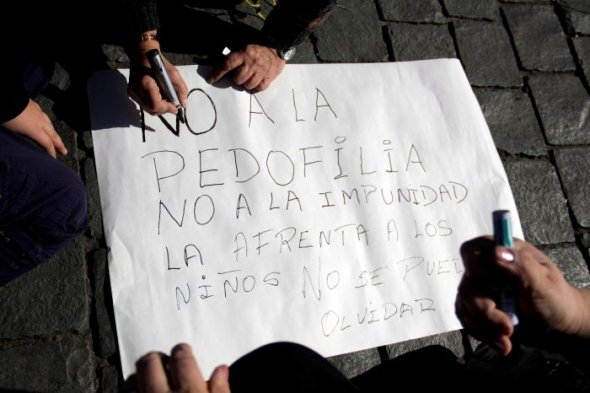 NO A LA
PEDOFILIA
NO A LA IMPUNIDAD
LA AFRENTA A LOS
NIÑOS NO SE PUE
OLVIDAR